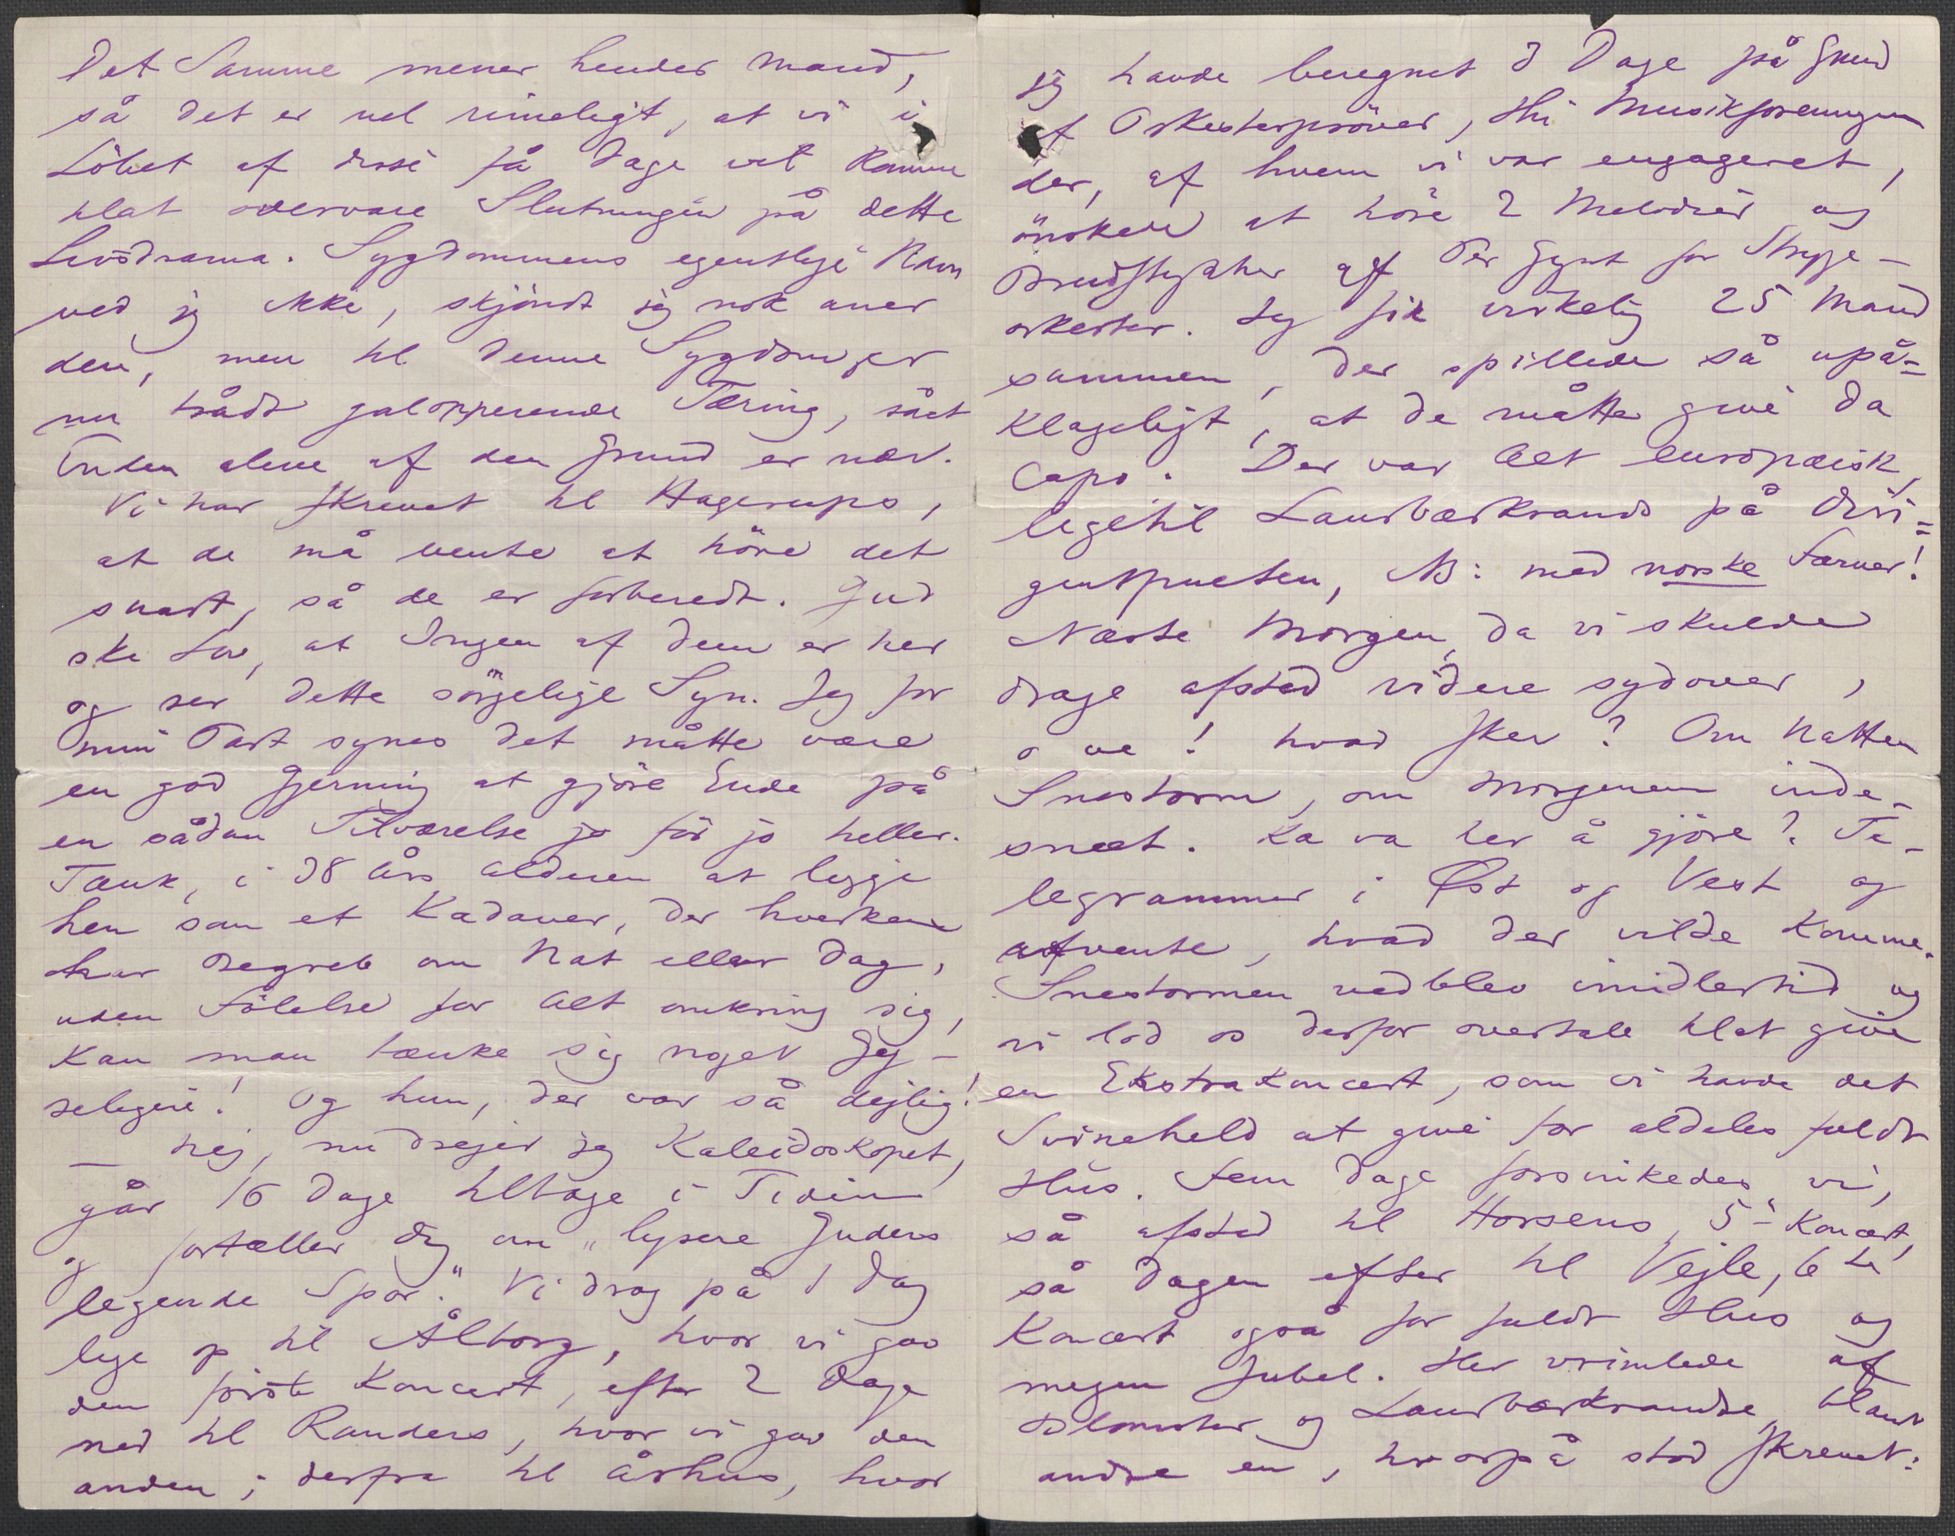 Det Samme mener hendes Mand,
så det er vel rimeligt, at vi i
Löbet af disse få Dage vil komme
til at overvære Slutningen på dette
Livsdrama. Sygdommens egentlige Navn
ved jeg ikke, skjöndt jeg nok aner
den, men til denne Sygdom er
nu trådt galopperende Tæring, såat
Enden alene af den Grund er nær.
Vi har skrevet til Hagerups,
at de må vente at höre det
snart, så de er forberedt. Gud
ske Lov, at Ingen af dem er her
og ser dette sörgelige Syn. Jeg for
min Part synes det måtte være
en god Gjerning at gjöre Ende på
en sådan Tilværelse jo för jo heller.
Tænk, i 38 Års Alderen at ligge
hen som et Kadaver, der hverken
har Begreb om Nat eller Dag,
uden Fölelse for Alt omkring sig,
Kan man tænke sig noget Gy-
seligere! Og hun, der var så dejlig!
— Nej, nu drejer jeg Kaleidoskopet,
går 16 Dage tilbage i Tiden
og fortæller Dig om "lysere Guders
legende Spor." Vi drog på 1 Dag
lige op til Ålborg, hvor vi gav
den förste Koncert, efter 2 Dage
ned til Randers, hvor vi gav den
anden; derfra til Århus, hvor
jeg havde beregnet 3 Dage på Grund
af Orkesterpröver, thi Musikforeningen
der, af hvem vi var engageret,
önskede at höre 2 Melodier og
Brudstykker af Per Gynt for Stryge-
orkester. Jeg fik virkelig 25 Mand
sammen, der spillede så upå=
klageligt, at de måtte give da
capo. Der var Alt europæisk,
ligetil Laurbærkrands på Diri=
gentpulten, NB: med norske Farver!
Næste Morgen, da vi skulde
drage afsted videre sydover,
o ve! hvad sker? Om Natten
Snestorm, om Morgenen inde-
sneet. Ka va her å gjöre? Te-
legrammer i Øst og Vest og
afvente, hvad der vilde komme.
Snestormen vedblev imidlertid og
vi lod os derfor overtale til at give
en Ekstrakoncert, som vi havde det
Svineheld at give for aldeles fuldt
Hus. Fem Dage forsinkedes vi,
så afsted til Horsens, 5te Koncert,
så Dagen efter til Vejle, 6te
Koncert også for fuldt Hus og
megen Jubel. Her vrimlede af
Blomster og Laurbærkrandse, blandt
andre en, hvorpå stod skrevet: